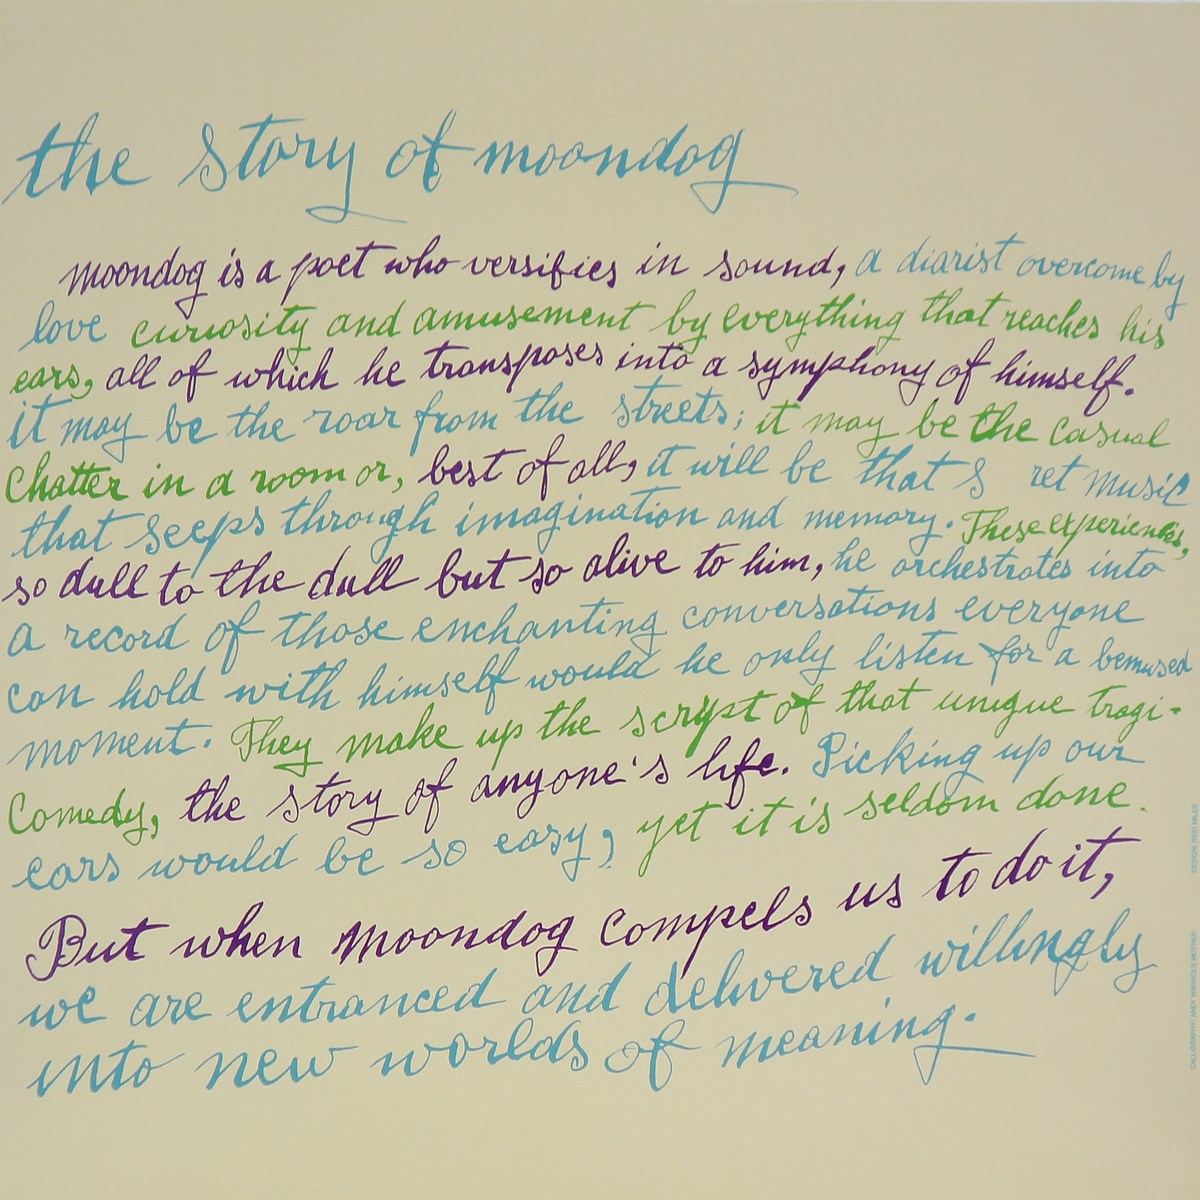 the story of moondog
moondog is a poet who versifies in sound, a diarist overcome by
love curiosity and amusement by everything that reaches his
ears, all of which he transposes into a symphony of himself.
it may be the roar from the streets; it may be the casual
Chatter in a room or, best of all, it will be that s ret music
that seeps through imagination and memory. These experiences,
so dull to the dull but so alive to him, he orchestrates into
a record of those enchanting conversations everyone
can hold with himself would he only listen for a bemused
moment. They make up the script of that unique tragi-
Comedy, the story of anyone's life. Picking up our
ears would be so easy, yet it is seldom done.
But when moondog compels us to do it,
we are entranced and delivered willingly
into new worlds of meaning.
CALLIGRAPHY: ANDY WARHOL'S MOTHER DESIGN: REID MILES